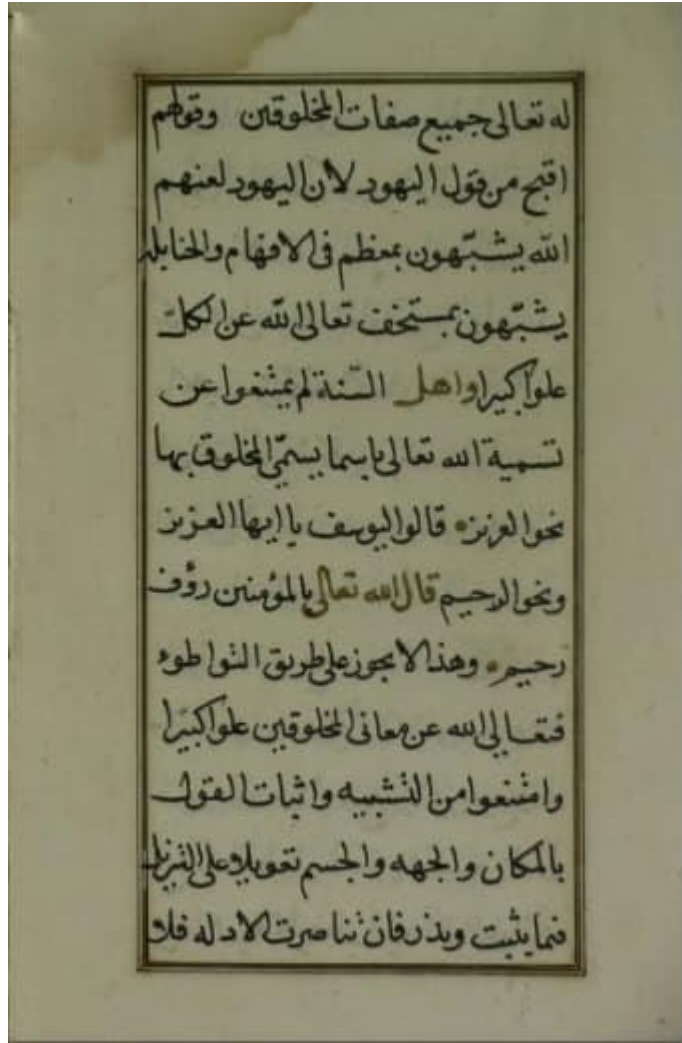 له تعالى جميع صفات المخلوقين وقولهم
اقبح من قول اليهود لان اليهود لعنهم
الله يشبّهون بمعظم في الافهام والحنابله
يشبّهون بمستخف تعالى الله عن الكلّ
علواً كبيرا واهل السّنة لم يمتنعوا عن
تسمية الله تعالى باسما يسمّى المخلوق بها
نحو العزيز قالوا ليوسف يا ايها العزيز
ونحو الرحيم قال الله تعالى بالمؤمنين رؤف
رحيم وهذا لا يجوز على طريق التواطوء
فتعالى الله عن معانى المخلوقين علواً كبيراً
وامتنعوا من التشبيه واثبات القول
بالمكان والجهه والجسم تعويلا على التنزيل
فيما يثبت ويذر فان تناصرت الادله فلا